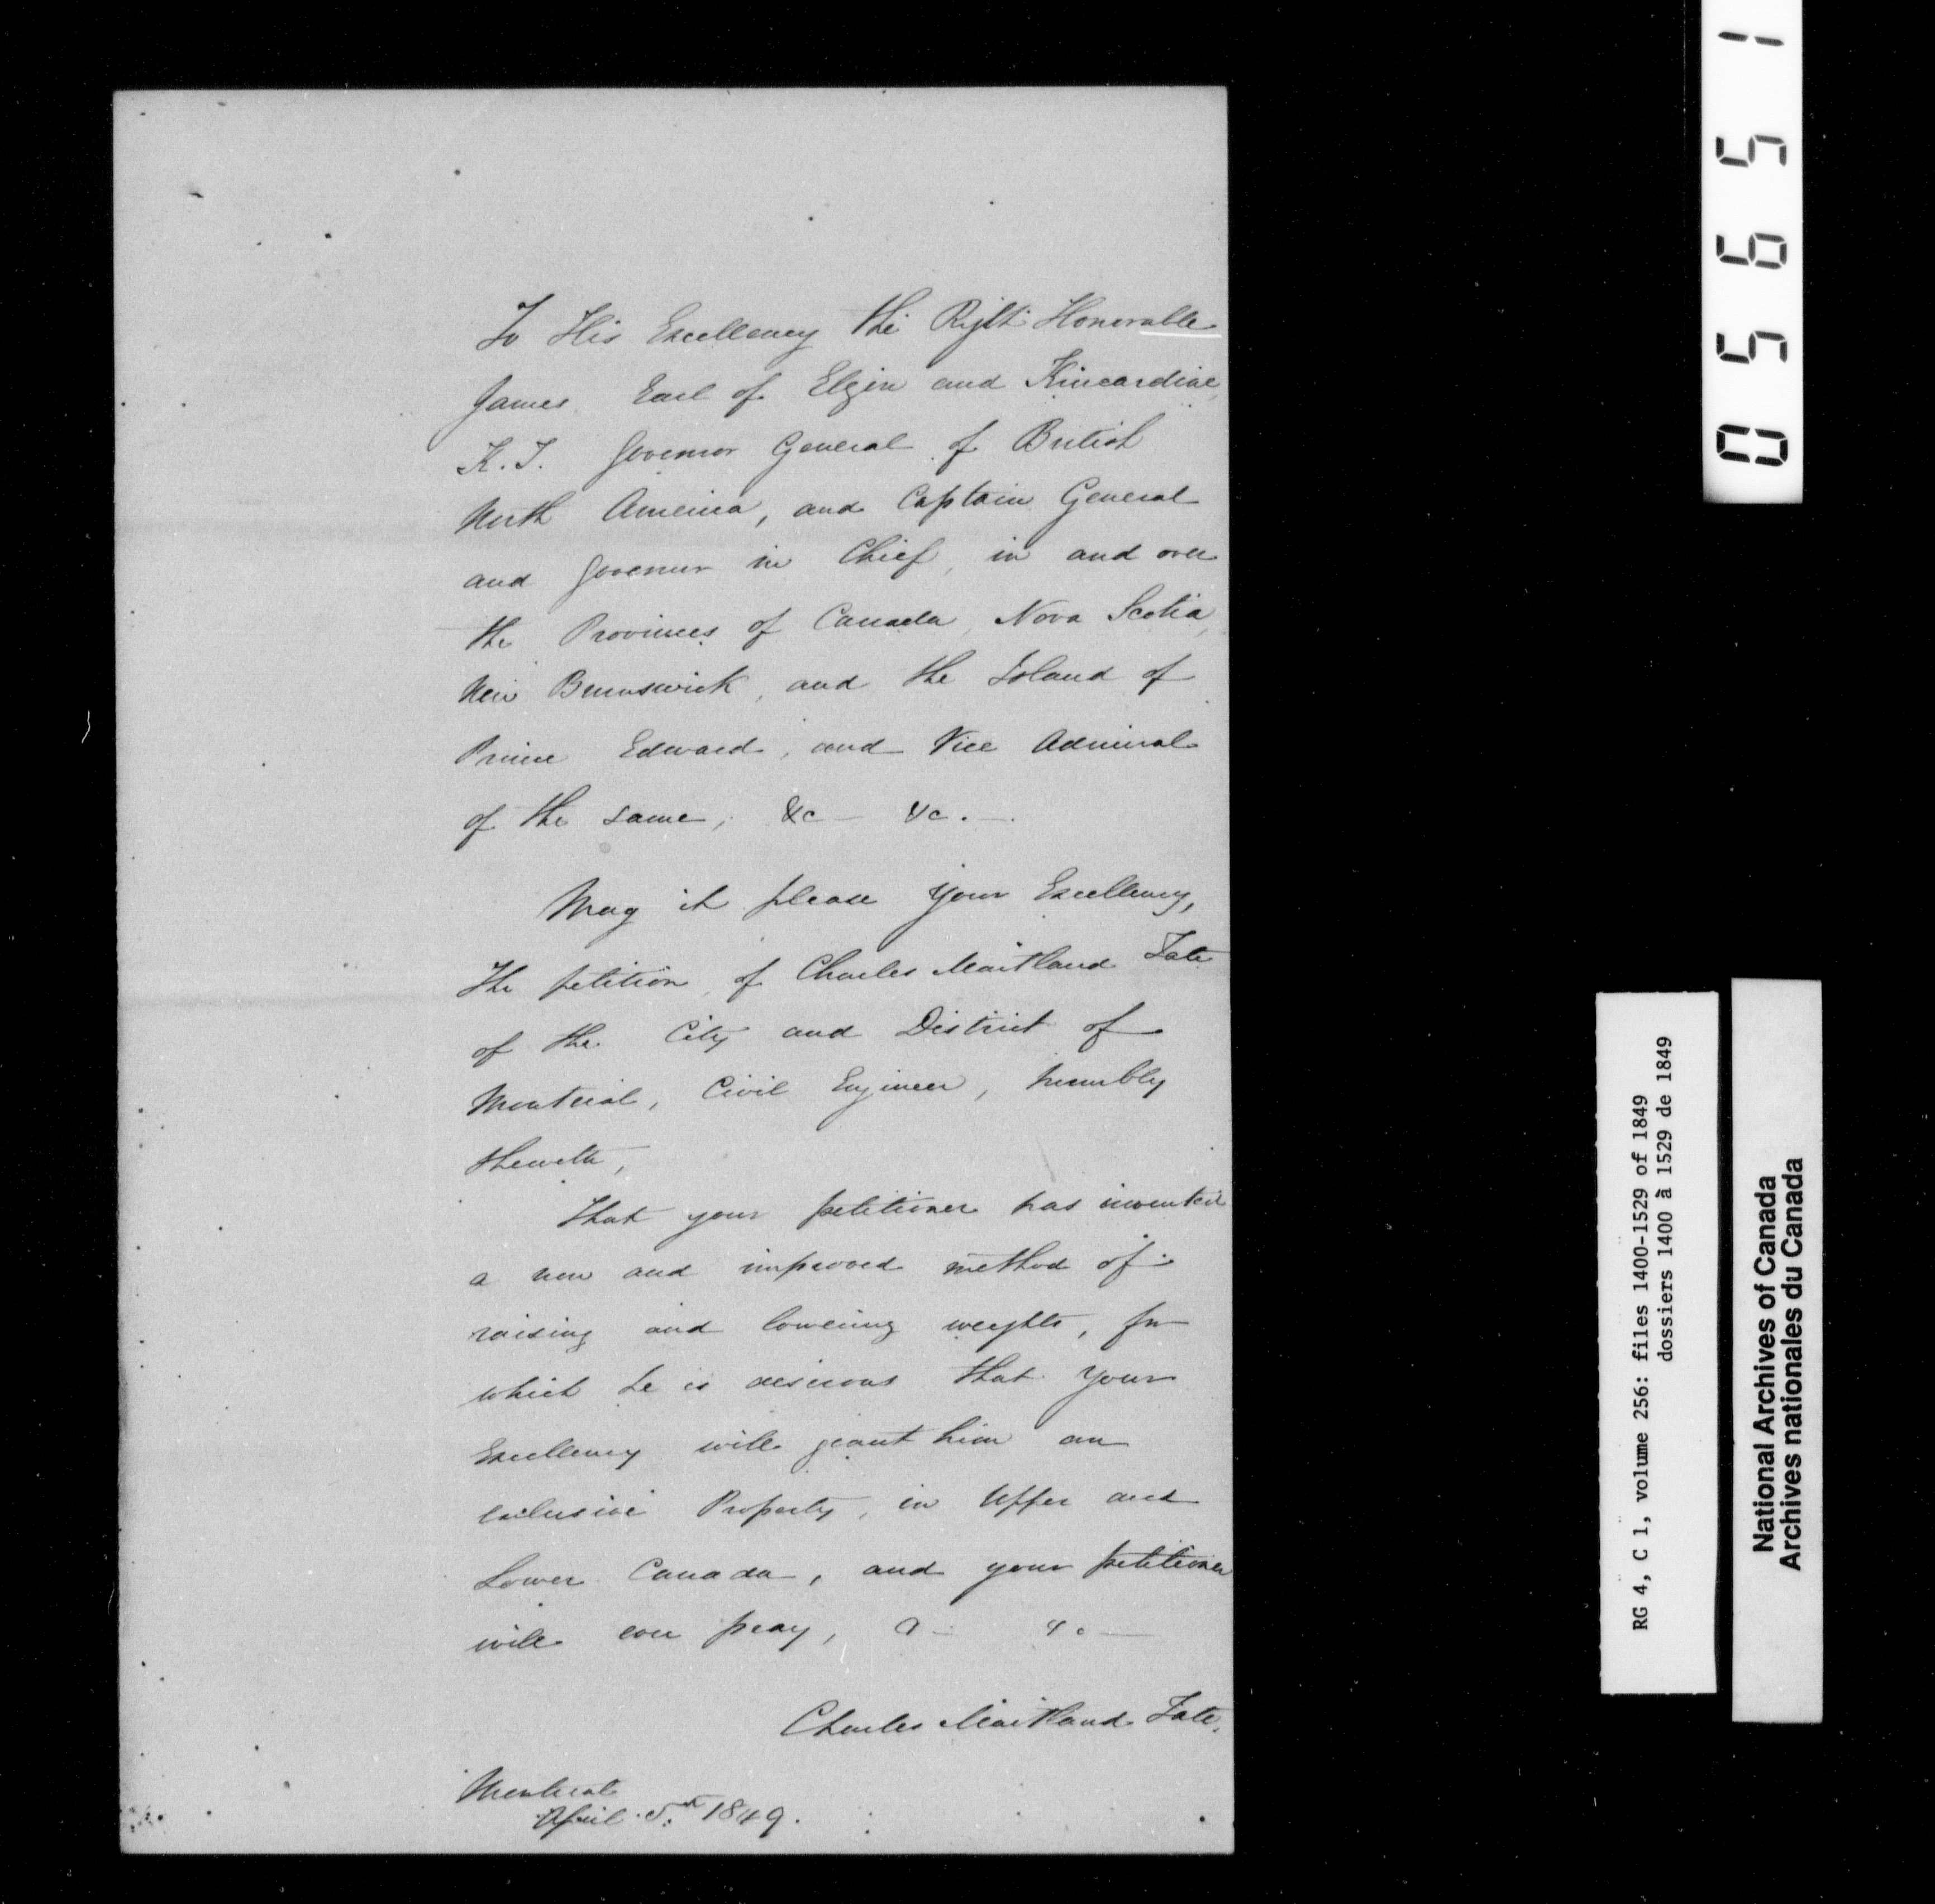 To His Excellency the Right Honorable
James Earl of Elgin and Kincardine,
K.T. Governor General of British
North America, and Captain General
and Governor in Chief, in and over
the Provinces of Canada, Nova Scotia,
New Brunswick, and the Island of
Prince Edward, and Vice Admiral
of the same, &c &c.
May it please Your Excellency,
The petition of Charles Maitland Tate
of the City and District of
Montreal, Civil Engineer, humbly
sheweth,
That your petitioner has invented
a new and improved method of
raising and lowering weights, for
which he is desirous that Your
Excellency will grant him an
exclusive Property, in Upper and
Lower Canada, and your petitioner
will ever pray, & &c
Charles Maitland Tate.
Montreal
April 5th 1849.
05651
RG 4, C 1, volume 256: files 1400-1529 of 1849
dossiers 1400 à 1529 de 1849
National Archives of Canada
Archives nationales du Canada